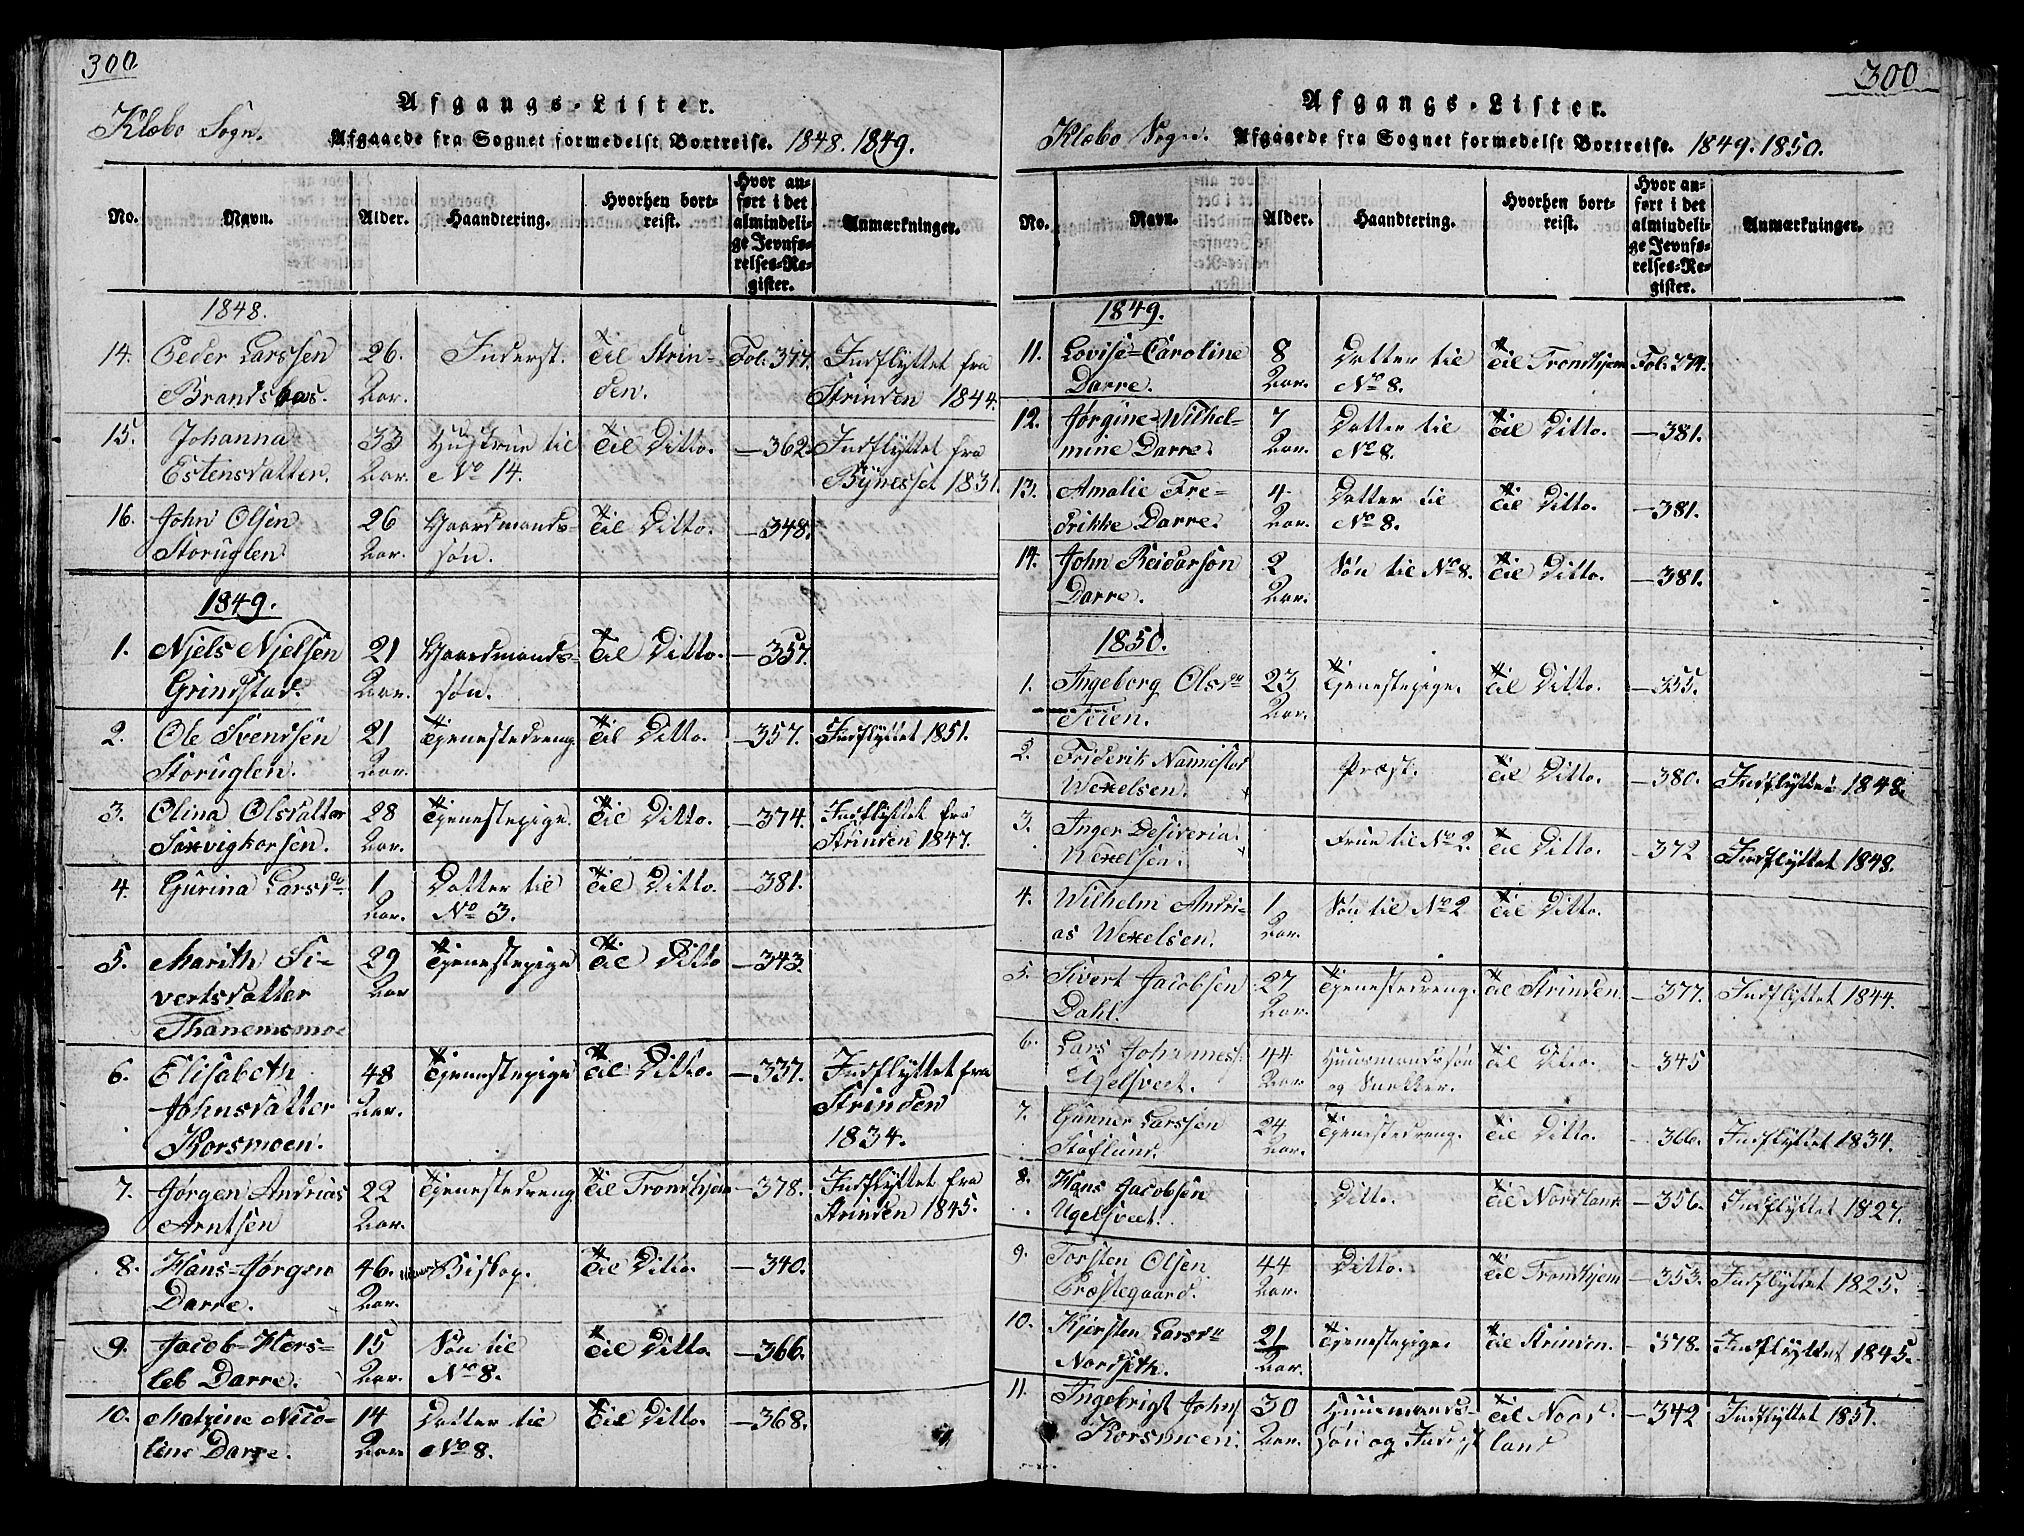 300
Klæbo Sogn.
Afgangs-Lister.
Afgaaede fra Sognet formedelst Bortreise. 1848. 1849.
No. Navn. Alder. Haandtering. Hvorhen bortreist. Hvor anført i det almindelige Jevnførelses-Register. Anmærkninger.
1848.
14. Peder Larssen 26. Inderst. Til Strin- Fol. 377. Indflyttet fra
Brandsaas. Aar. den. Strinden 1844.
15. Johanna 33 Hustrue til Til Ditto. —362. Indflyttet fra
Estensdatter. Aar. No 14. Bynesset 1831.
16. John Olsen 26 Gaardmands- Til Ditto. —348.
Storuglen Aar. søn.
1849.
1. Njels Njelsen 21 Gaardmands- Til Ditto. —357.
Grindstad. Aar. søn.
2. Ole Svendsen 21 Tjenestedreng. Til Ditto. —357. Indflyttet 1851.
Storuglen. Aar.
3. Olina Olsdatter 28 Tjenestepige. Til Ditto. —374. Indflyttet fra
Saxvigkorsen. Aar. Strinden 1847.
4. Gurina Larsdr. 1 Datter til Til Ditto. —381.
Aar. No 3.
5. Marith Si- 29 Tjenestepige Til Ditto —343.
vertsdatter Aar
Thanemsmo-
6. Elisabeth 48 Tjenestepige Til Ditto. —337. Indflyttet fra
Johnsdatter Aar. Strinden
Korsmoen. 1834.
7. Jørgen Andrias 22 Tjenestedreng Til Trondhjem —378. Indflyttet fra
Arntsen Aar. Strinden 1845.
8. Hans-Jørgen 46. Biskop. Til Ditto. —340.
Darre. Aar.
9. Jacob-Hers- 15 Søn til Til Ditto. —366.
leb Darre. Aar. No 8.
10. Matzine Nico- 14 Datter til Til Ditto. —368.
line Darre. Aar. No 8.
300
Klæbo Sogn.
Afgangs-Lister.
Afgaaede fra Sognet formedelst Bortreise. 1849. 1850.
No. Navn. Alder. Haandtering. Hvorhen bortreist. Hvor anført i det almindelige Jevnførelses-Register. Anmærkninger.
1849.
11. Lovise-Caroline 8 Datter til Til Trondhjem Fol. 374.
Darre. Aar. No 8.
12. Jørgine-Wilhel- 7 Datter til Til Ditto. —381.
mine Darre. Aar. No 8.
13. Amalie Fre- 4 Datter til Til Ditto. —381.
drikke Darre. Aar. No 8.
14. John Reidarson 2 Søn til No 8. Til Ditto. —381.
Darre. Aar.
1850.
1. Ingeborg Olsdr 23 Tjenestepige. Til Ditto. —355.
Teien. Aar.
2. Friderik Nannestad Præst. Til Ditto. —380. Indflyttet 1848.
Wexelsen.
3. Inger Desideria Frue til No 2. Til Ditto. —372 Indflyttet 1848.
Wexelsen.
4. Wilhelm Andri- 1 Søn til No 2 Til Ditto.
as Wexelsen. Aar.
5. Sivert Jacobsen 27 Tjenestedreng. Til Strinden. —377. Indflyttet 1844.
Dahl. Aar.
6. Lars Johannes. 44 Huusmandssøn Til Ditto. —345
Ugelsveet. Aar. og Snekker.
7. Gunner Larssen 24 Tjenestedreng. Til Ditto. —366. Indflyttet 1834.
Aar.
8. Hans Jacobsen Ditto. Til Nordland —356. Indflyttet 1827.
Ugelsveet.
9. Torsten Olsen 44 Ditto. Til Trondhjem —353. Indflyttet 1825.
Præstegaard. Aar.
10. Kjersten Larsdr 21 Tjenestepige. Til Strinden. —378. Indflyttet 1845.
Nordseth. Aar.
11. Ingebrigt Johns 30 Huusmands- Til Nord- —342 Indflyttet 1851.
Korsmoen. Aar. søn og Inderst land